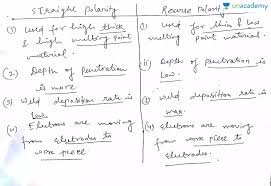 straight polarity
(1) Used for high thick
& high melting point
material.
(2) Depth of penetration
is more
(3) Weld deposition rate is
low.
(4) Elutrons are moving
from eluctrodes to
work piece
Reverse Polarity
unacademy
(1) Used for thin & low
melting point material.
(2) Depth of penetration is
Low.
(3) Weld deposition rate is
max.
(4) Elutrons are moving
from work piece to
eluctrodes.